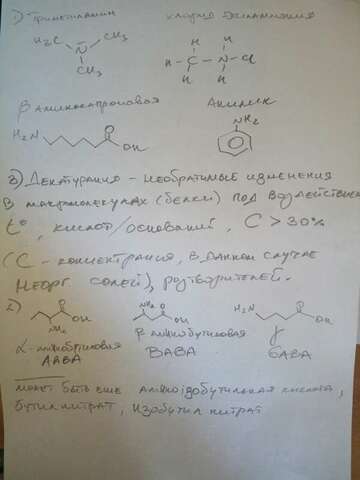 1) Триметиламин
хлорид этиламмония
H₃C CH₃
N
CH₃
H H
H - C - N - Cl
H H
β аминокапроновая
Анилин
H₂N O OH
NH₂
3) Денатурация - необратимые изменения
в макромолекулах (белки) под воздействием
t°, кислот/оснований, C > 30%
(C - концентрация, в данном случае
неорг. солей), розтворителей.
2)
O OH NH₂
NH₂ O OH
H₂N O OH
α-аминобутиловая
β аминобутиловая
γ
AABA BABA GABA
может быть еще аминоізобутильная кислота,
бутил нитрат, изобутил нитрат